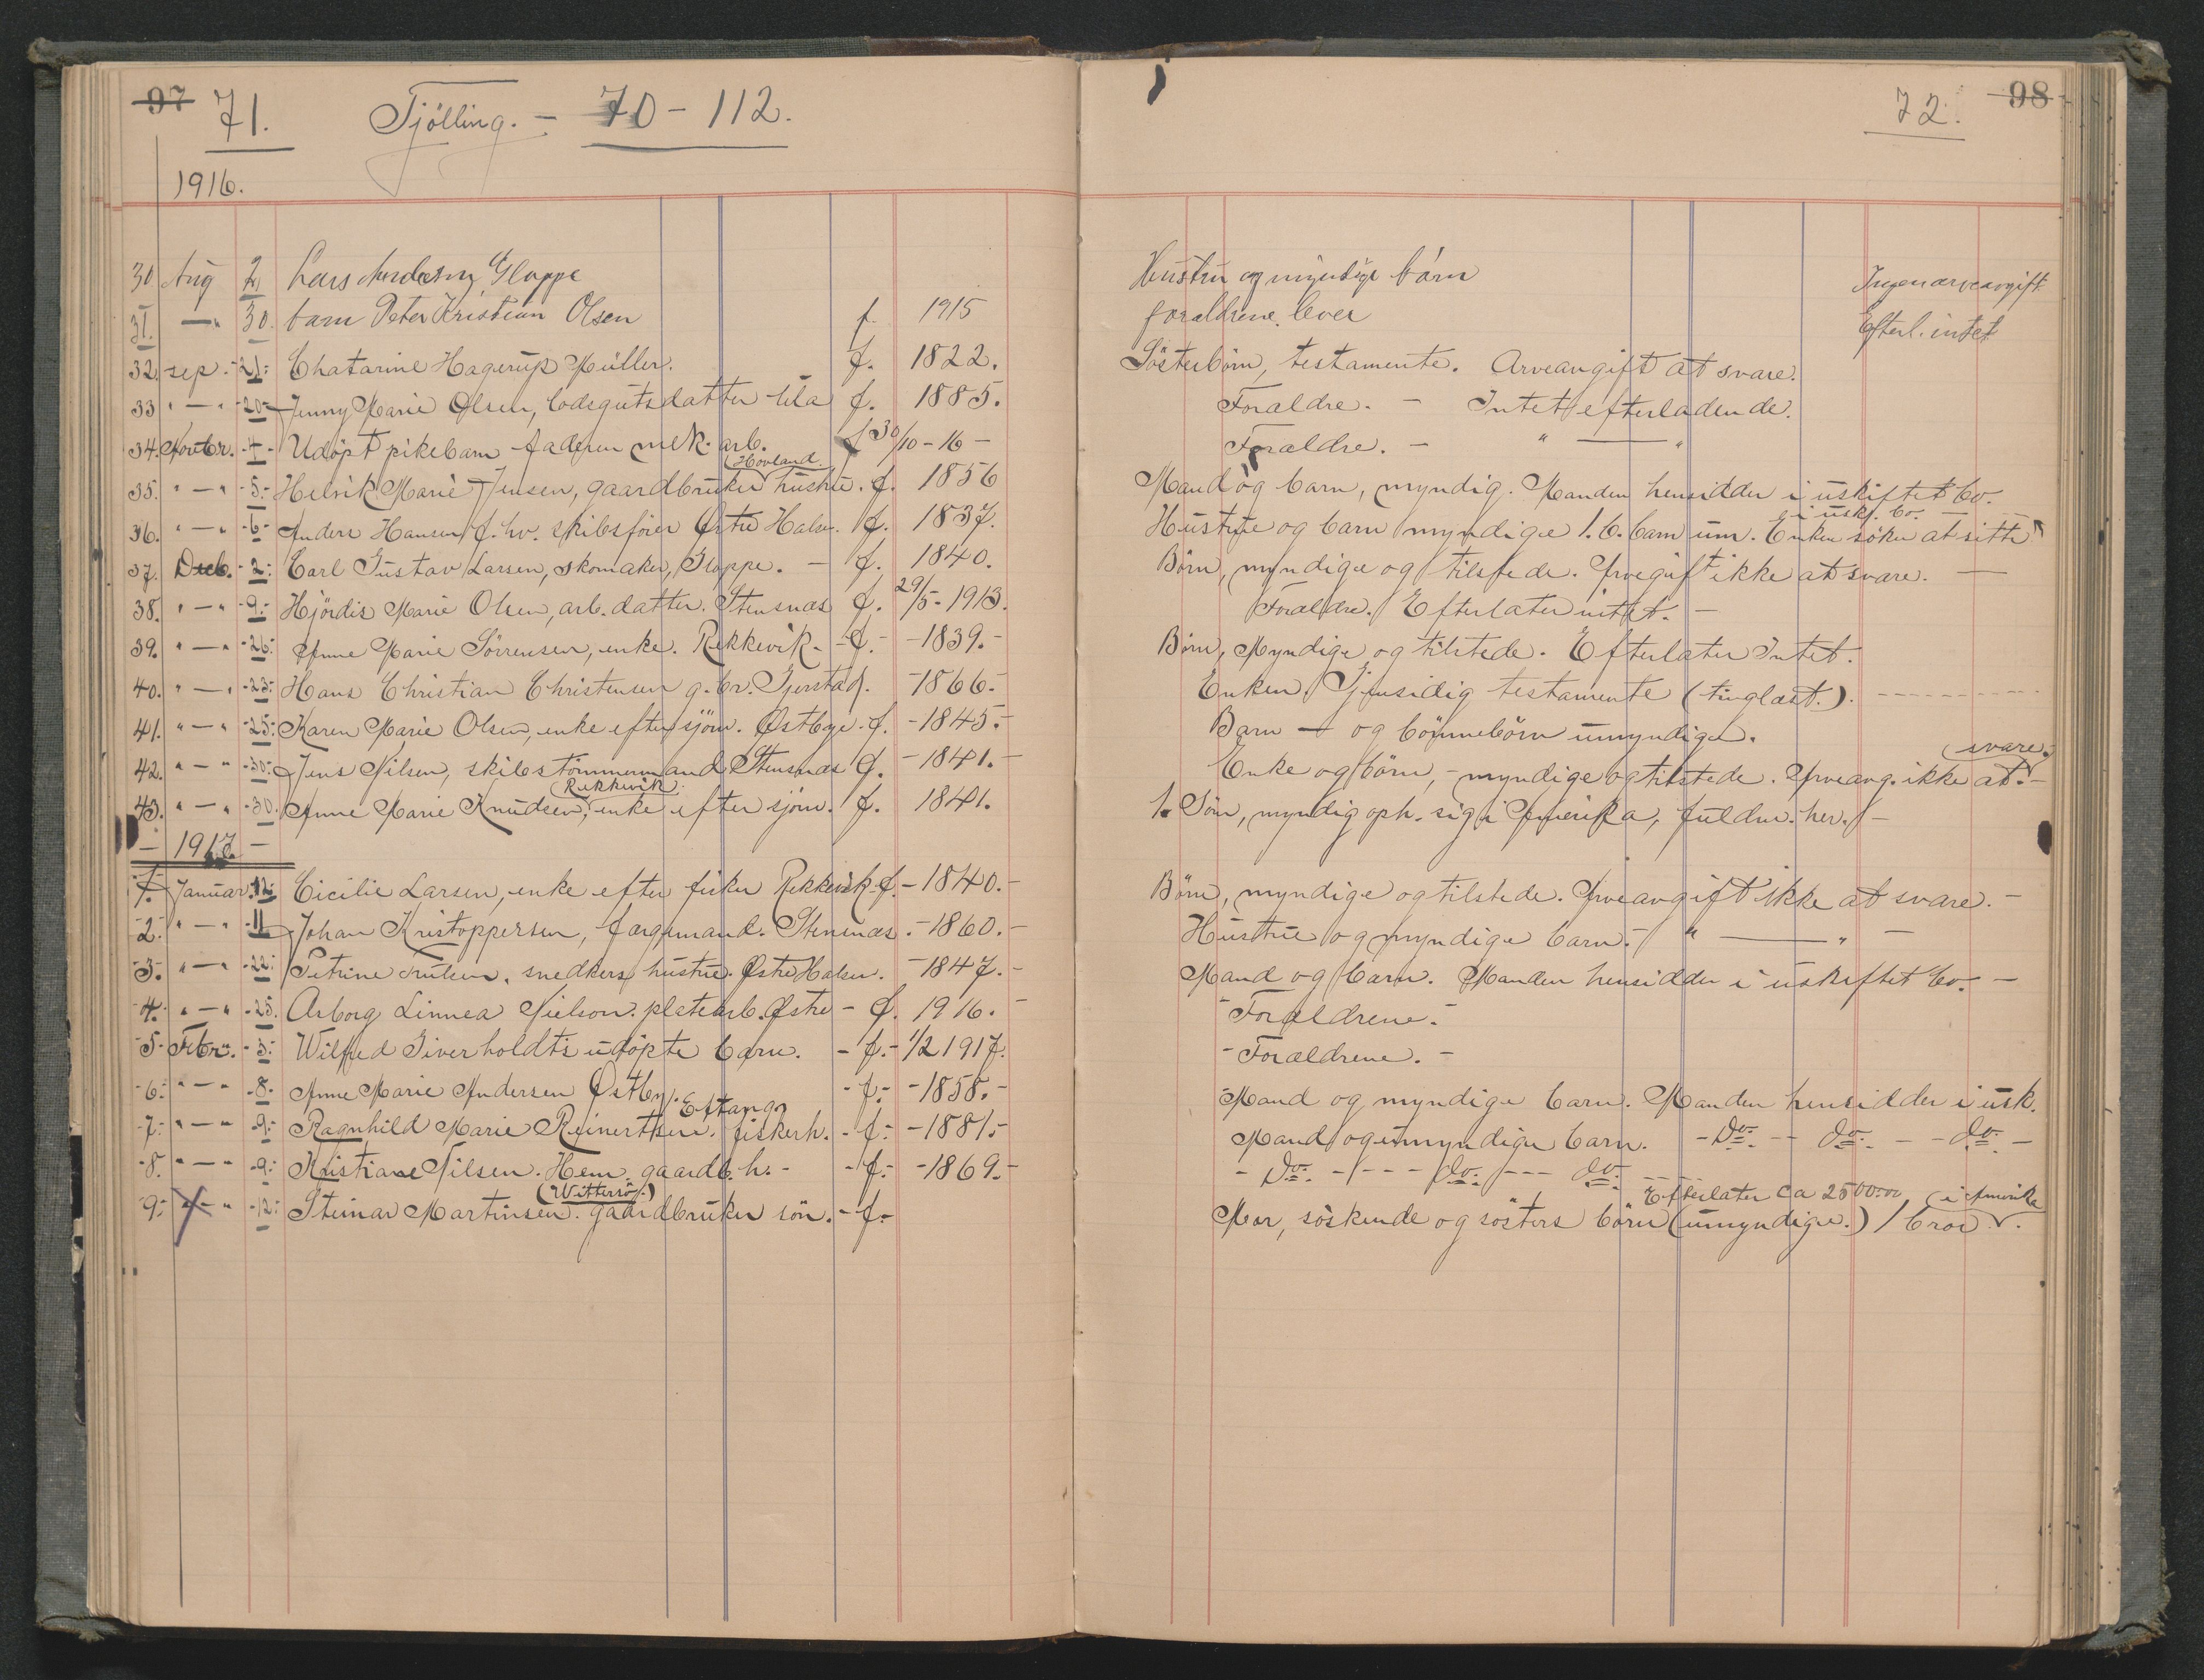 97 71. Tjölling. - 70 - 112.
1916.
30 Aug 2 Lars Andersen, Gloppe
31. — " 30. barn Peter Kristian Olsen f. 1915
32. sep. - 21 - Chatarine Hagerup Müller. f. 1822.
33 " — " - 20 - Jenny Marie Olsen, lodsgutsdatter Ula f. 1885.
34. Novbr. - 4 - Udöpt pikebarn - faderen mek. arb. f 30/10 - 16 -
(Hovland.
35. " — " - 5 - Helvik Marie Jensen, gaardbruker hustru. f. 1856
36. " — " - 6 - Anders Hansen f. hv. skibsförer Østre Halsn. f. 1837.
37. Decb. - 2 - Carl Gustav Larsen, skomaker, Gloppe. — f. 1840.
38. " — " - 9 - Hjördis Marie Olsen, arb. datter. Stensnæs f. 29/5 - 1913.
39. " — " - 26 - Anne Marie Sörrensen, enke. Rekkevik. - f. - - 1839. -
40. " — " - 23 - Hans Christian Christensen g. br. Gjerstad f. - 1866. -
41. " — " - 25 - Karen Marie Olsen, enke efter sjöm. Østbye - f. - 1845. -
42. " — " - 30 - Jens Nilsen, skibstömmermand Stensnæs f. - 1841. -
(Rekkevik.
43. " — " - 30. Anne Marie Knudsen, enke efter sjöm. f. 1841.
— 1917. —
1. Januar. 12 Cicilie Larsen, enke efter fisker Rekkevik f. - 1840. -
2. " — " - 11 Johan Kristoppersen, færgemand. Stensnæs. - 1860. -
3. " — " - 22 - Petrine Trulsen, snedkers hustru. Østre Halsen. - 1847. -
4. " — " - 25. Asborg Linnea Nielson. platearb. Østre - f. 1916. -
5 - Febru. - 3 - Wilfred Siverholdts udöpte barn. - f. - 1/2 1917.
- 6. - " — " - 8. - Anne Marie Andersen Østby. - f. - - 1858. -
Eftang
- 7. - " — " - 9. - Ragnhild Marie Reinertsen. fiskerh. - f. - - 1881. -
- 8. " — " - 9. - Kristiane Nilsen. Hem. gaardb. h. - - f. - - 1869. -
(Wittersö.)
9. - " — " - 12. - Steinar Martinsen. gaardbruker sön. - f. -
72. 98
Hustru og myndige börn Ingen arveavgift
forældrene lever Efterl. intet
Sösterbörn, testamente. Arveavgift at svare.
Forældre. - Intet efterladende.
Forældre. - " — "
Mand og barn, myndig. Manden hensidder i uskiftet bo.
i usk. bo.
Hustru og barn myndige 1. b. barn um. Enken söker at sitte
Börn, myndige og tilstede. Arvegift ikke at svare. —
Forældre. Efterlater intet. -
Börn, Myndige og tilstede. Efterlater Intet.
Enken. Gjensidig testamente (tinglæst.).
Barn — og börnebörn umyndige.
(svare.
Enke og börn, - myndige og tilstede. Arveavg. ikke at. -
1. Sön, myndig oph. sig i Amerika, fuldm. her. -
Börn, myndige og tilstede. Arveavgift ikke at svare. -
Hustru og myndige barn. - " — " —
Mand og barn. Manden hensidder i uskiftet bo. -
- Forældrene. -
- Forældrene. -
- Mand og myndige barn. Manden hensidder i usk.
Mand og umyndige barn. - Do. - - do. - - do. -
- Do. - - - - do. - - - do.
Efterlater ca 2500.00, (i Amerika
Mor, söskende og sösters börn (umyndige.) 1 bror.